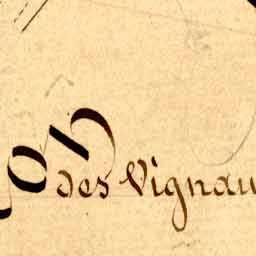 des Vignau